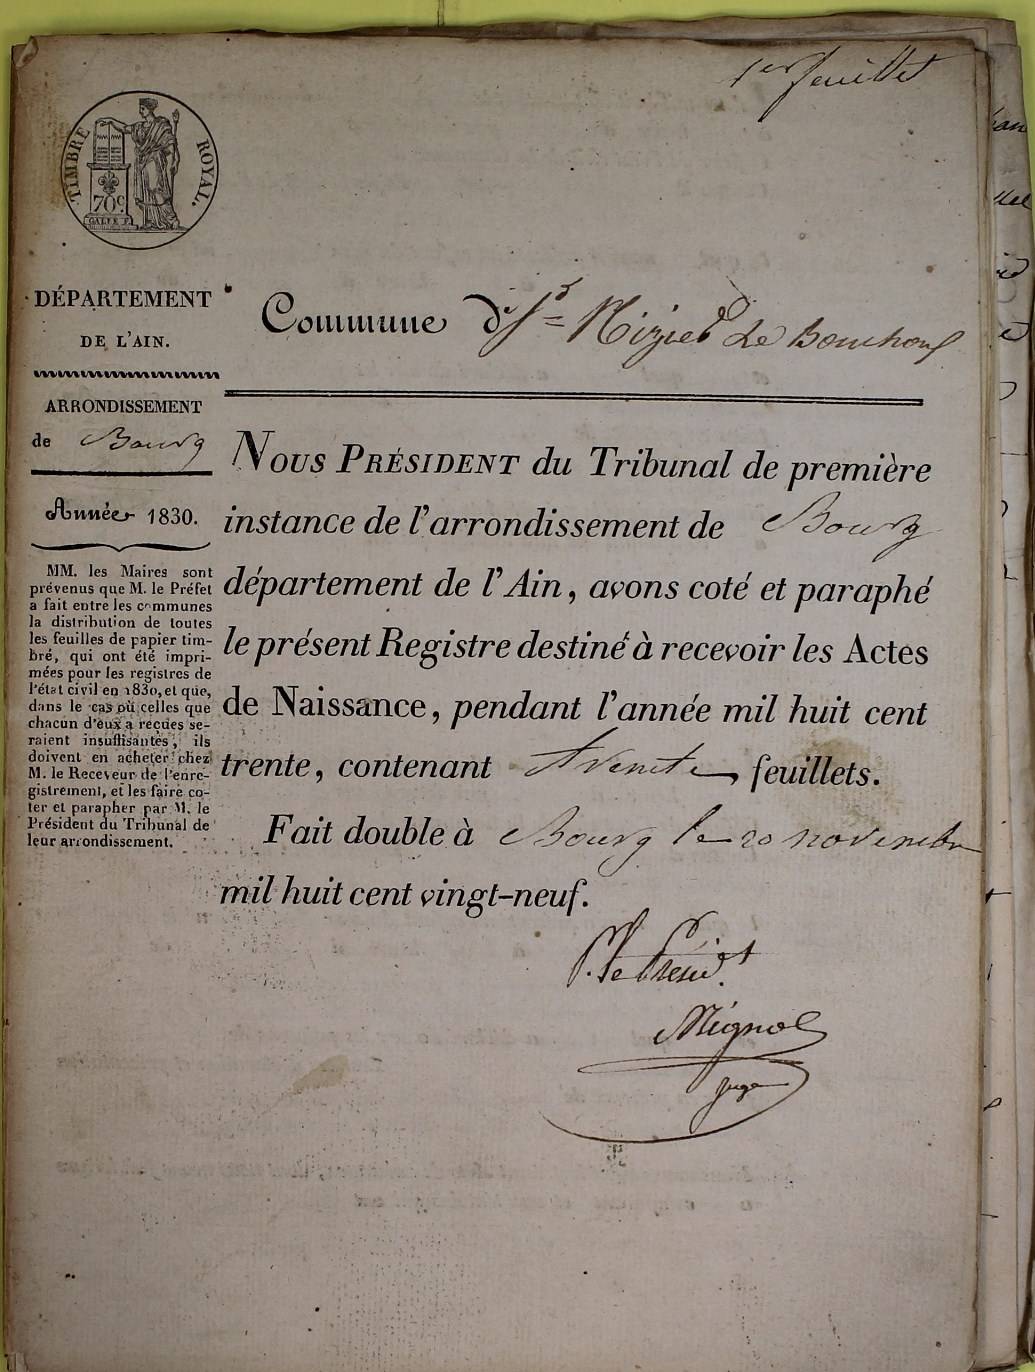 1er feuillet
TIMBRE ROYAL.
70c.
GALLE F.
DÉPARTEMENT
DE L'AIN.
ARRONDISSEMENT
de Bourg
Année 1830.
MM. les Maires sont
prévenus que M. le Préfet
a fait entre les communes
la distribution de toutes
les feuilles de papier tim-
bré, qui ont été impri-
mées pour les registres de
l'état civil en 1830, et que,
dans le cas où celles que
chacun d'eux a reçues se-
raient insuffisantes, ils
doivent en acheter chez
M. le Receveur de l'enre-
gistrement, et les faire co-
ter et parapher par M. le
Président du Tribunal de
leur arrondissement.
Commune de St Nizier Le Bouchoux
NOUS PRÉSIDENT du Tribunal de première
instance de l'arrondissement de Bourg
département de l'Ain, avons coté et paraphé
le présent Registre destiné à recevoir les Actes
de Naissance, pendant l'année mil huit cent
trente, contenant trente feuillets.
Fait double à Bourg le 20 novembre
mil huit cent vingt-neuf.
P. le Présidt.
Mignot
juge